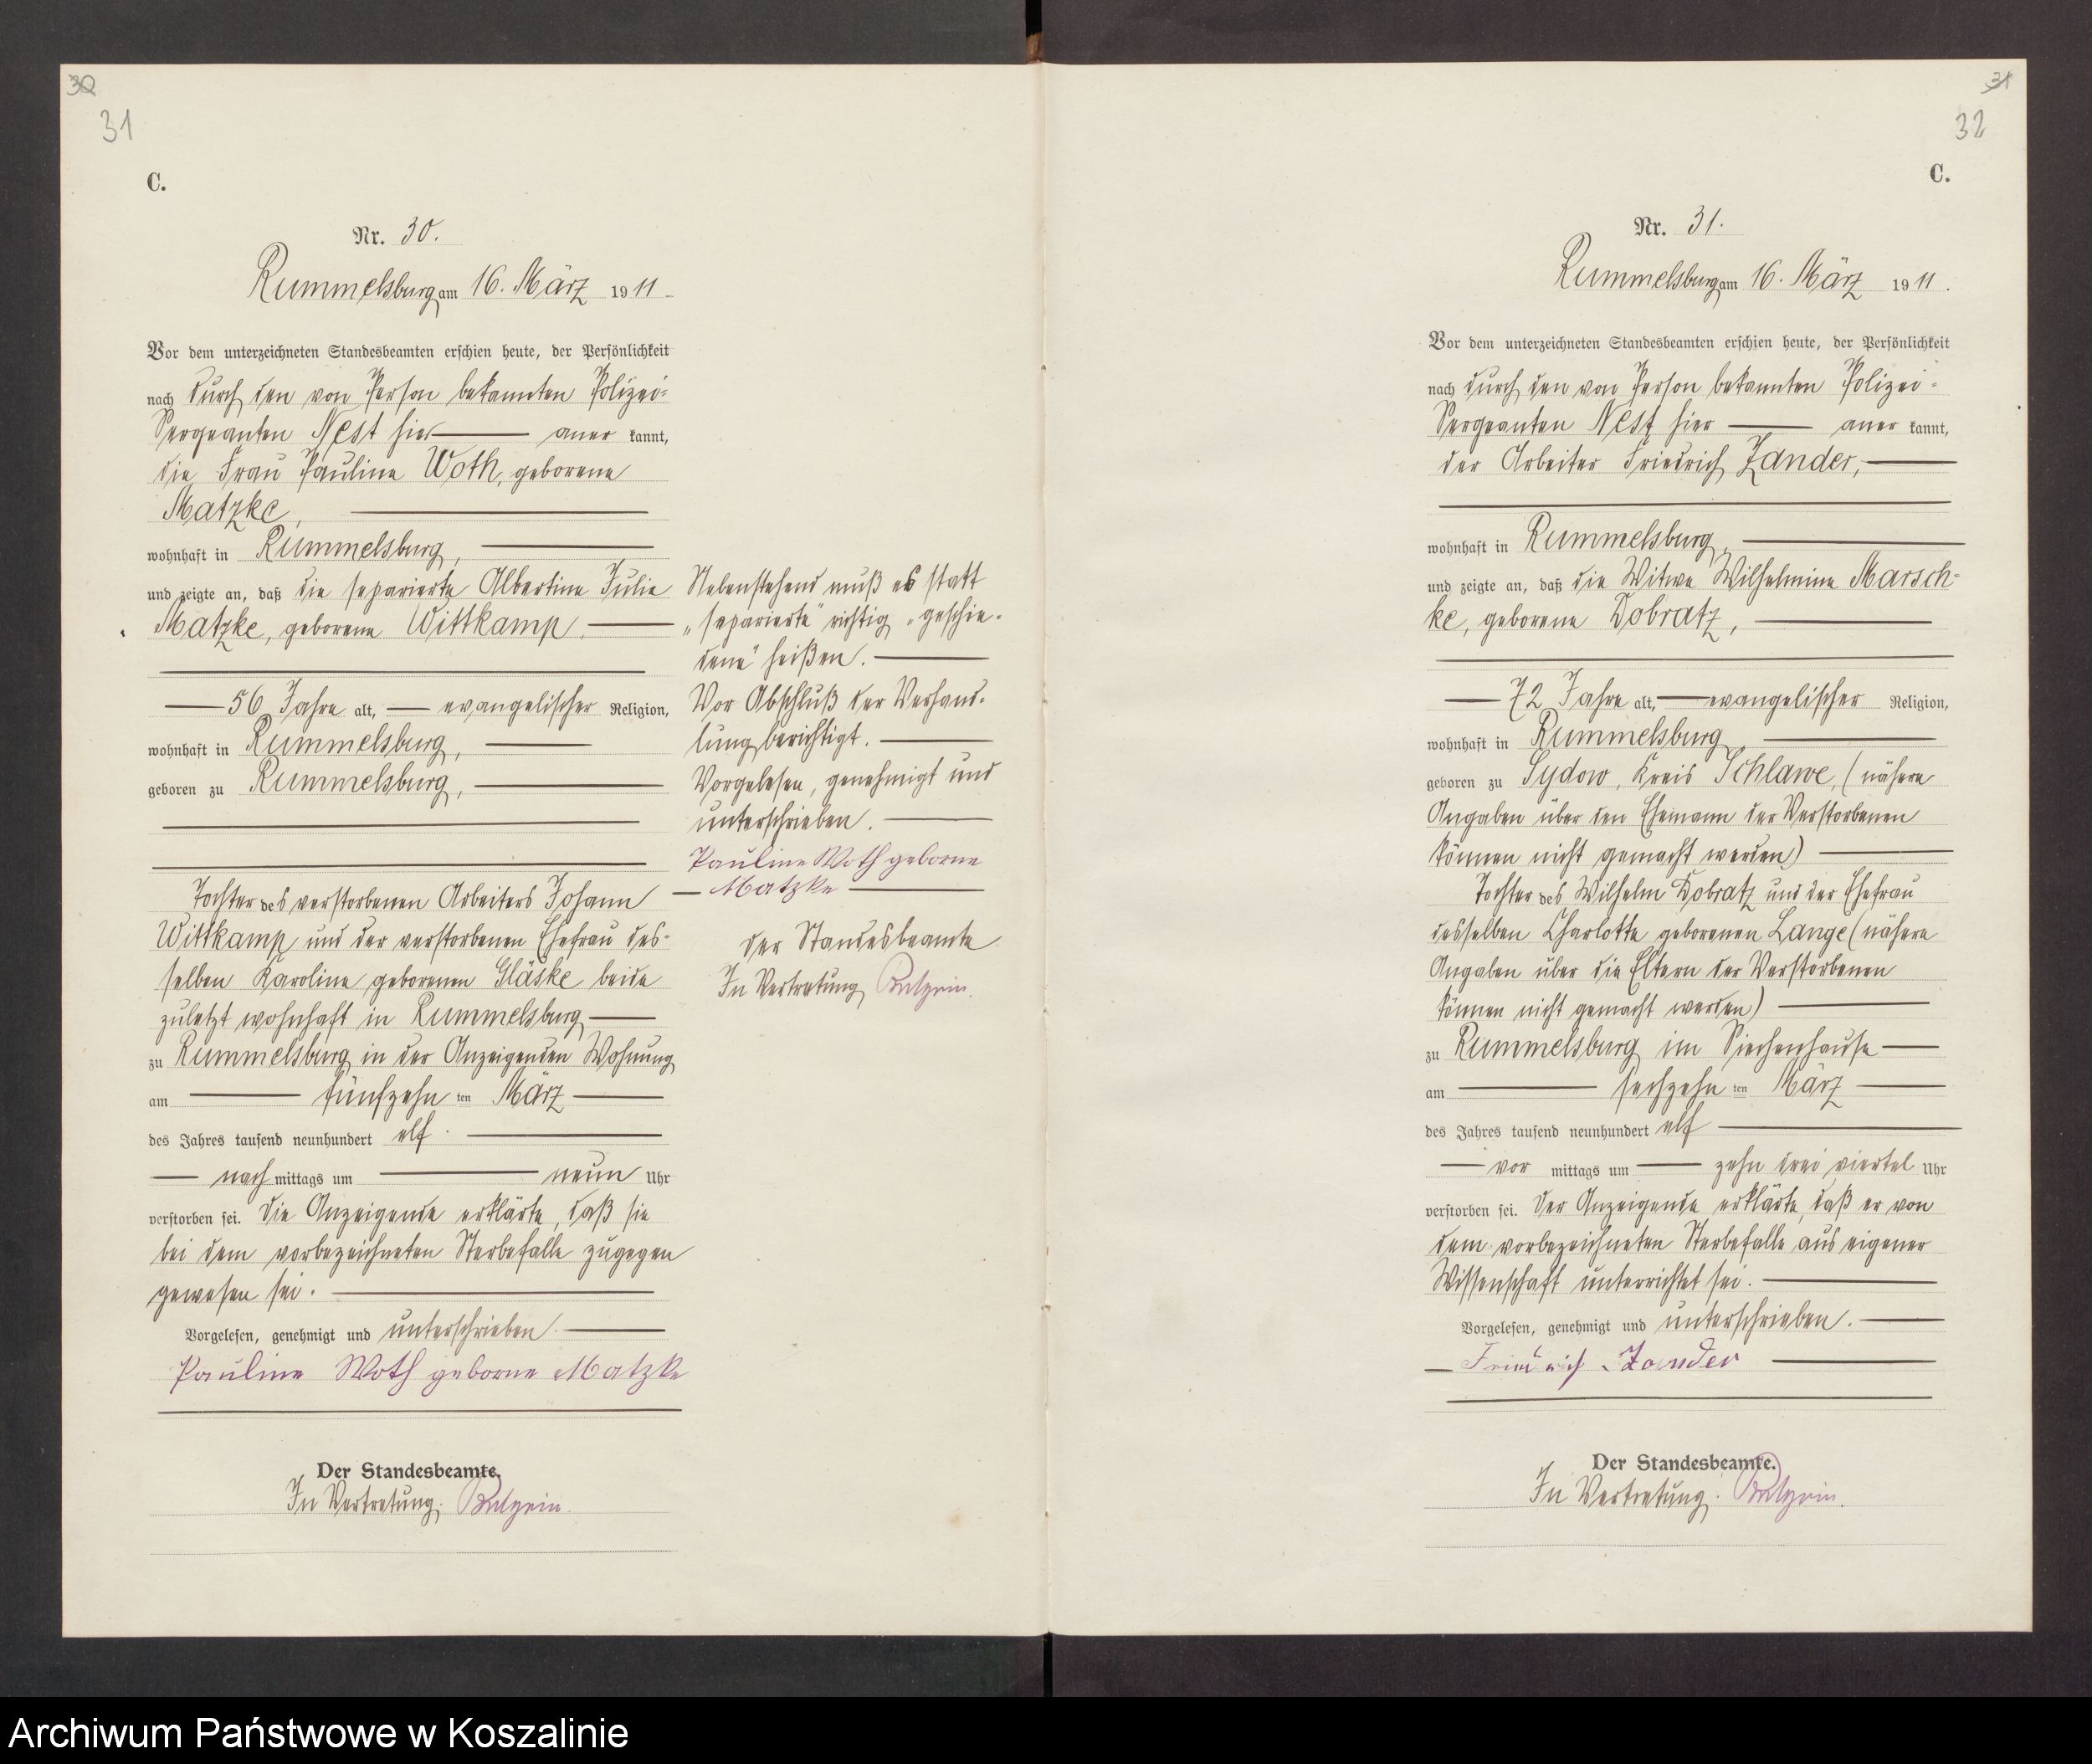 30
31
C.
Nr. 30.
Rummelsburg am 16. März 1911
Vor dem unterzeichneten Standesbeamten erschien heute, der Persönlichkeit
nach durch den von Person bekannten Polizei-
Sergeanten Nest hier aner kannt,
die Frau Pauline Woth, geborene
Matzke,
wohnhaft in Rummelsburg,
und zeigte an, daß die separierte Albertine Julie
Matzke, geborene Wittkamp,
56 Jahre alt, evangelischer Religion,
wohnhaft in Rummelsburg,
geboren zu Rummelsburg,
Tochter des verstorbenen Arbeiters Johann
Wittkamp und der verstorbenen Ehefrau des-
selben Karoline geborenen Gläske beide
zuletzt wohnhaft in Rummelsburg
zu Rummelsburg in der Anzeigenden Wohnung
am fünfzehn ten März
des Jahres tausend neunhundert elf
nach mittags um neun Uhr
verstorben sei. Die Anzeigende erklärte, daß sie
bei dem vorbezeichneten Sterbefalle zugegen
gewesen sei.
Vorgelesen, genehmigt und unterschrieben.
Pauline Woth geborne Matzke
Der Standesbeamte.
In Vertretung.
Nebenstehend muß es statt
„separierte" richtig „geschie-
dene" heißen.
Vor Abschluß der Verhand-
lung berichtigt.
Vorgelesen, genehmigt und
unterschrieben.
Pauline Woth geborne
Matzke
Der Standesbeamte
In Vertretung
31
32
C.
Nr. 31.
Rummelsburg am 16. März 1911.
Vor dem unterzeichneten Standesbeamten erschien heute, der Persönlichkeit
nach durch den von Person bekannten Polizei-
Sergeanten Nest hier aner kannt,
der Arbeiter Friedrich Zander,
wohnhaft in Rummelsburg,
und zeigte an, daß die Witwe Wilhelmine Marsch-
ke, geborene Dobratz,
72 Jahre alt, evangelischer Religion,
wohnhaft in Rummelsburg
geboren zu Sydow, Kreis Schlawe, (nähere
Angaben über den Ehemann der Verstorbenen
können nicht gemacht werden)
Tochter des Wilhelm Dobratz und der Ehefrau
desselben Charlotte geborenen Lange (nähere
Angaben über die Eltern der Verstorbenen
können nicht gemacht werden)
zu Rummelsburg im Siechenhause
am sechzehn ten März
des Jahres tausend neunhundert elf
vor mittags um zehn drei viertel Uhr
verstorben sei. Der Anzeigende erklärte, daß er von
dem vorbezeichneten Sterbefalle aus eigener
Wissenschaft unterrichtet sei.
Vorgelesen, genehmigt und unterschrieben.
Friedrich Zander
Der Standesbeamte.
In Vertretung.
Archiwum Państwowe w Koszalinie